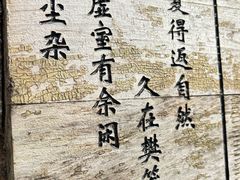 尘杂
虚室有余闲
久在樊笼
复得返自然